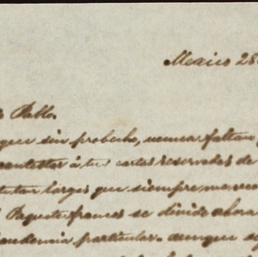 Mexico 28
Pablo.
que sin probecho, nunca faltan
contestar á tus cartas reservadas de
largas que siempre me
Paquete frances se divide ahora
particular. aunque